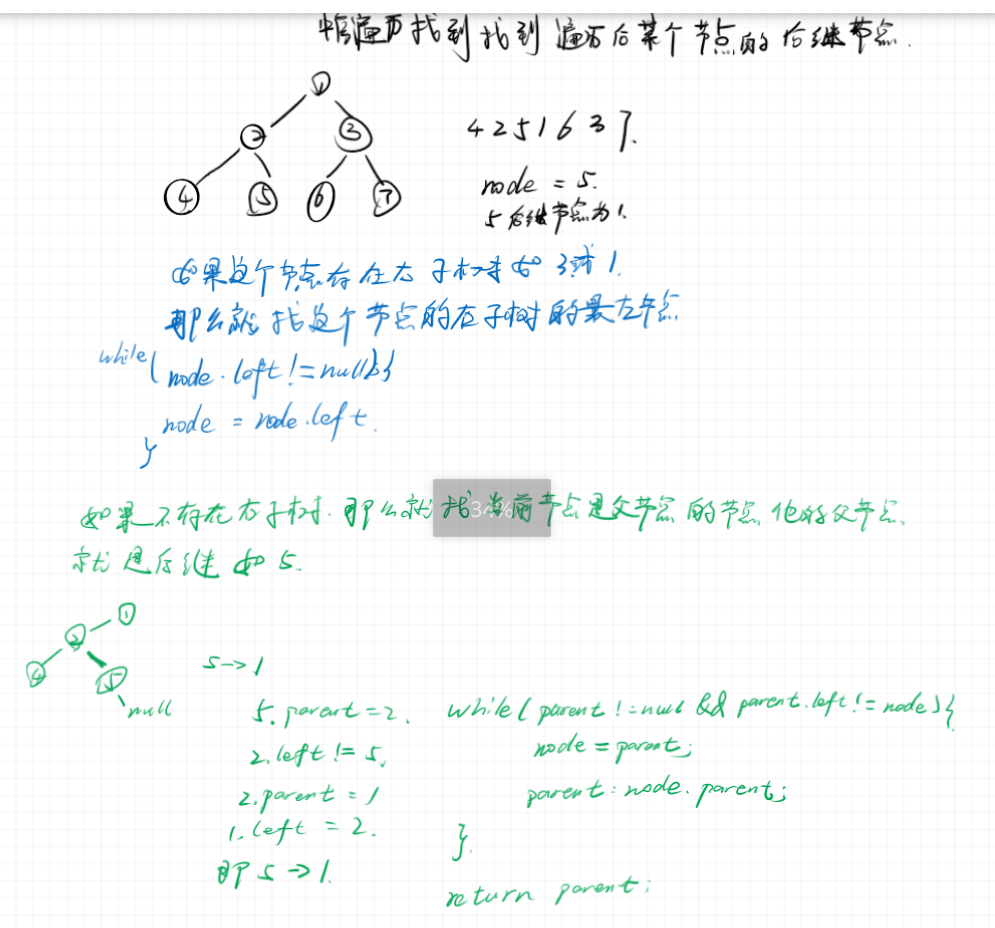 中序遍历找到找到遍历后某个节点的后继节点.
1
2
3
4 5 6 7
4 2 5 1 6 3 7.
node = 5.
5后继节点为1.
如果这个节点存在右子树 如 3或1.
那么就找这个节点的右子树的最左节点
while(
node.left != null){
node = node.left.
}
34%
如果不存在右子树.那么就找当前节点是父节点的节点 他的父节点
就是后继 如 5.
1
2
4 5
null
5->1
5.parent=2.
2.left != 5.
2.parent = 1
1.left = 2.
即 5 -> 1.
while( parent != null && parent.left != node){
node = parent;
parent = node.parent;
}.
return parent;